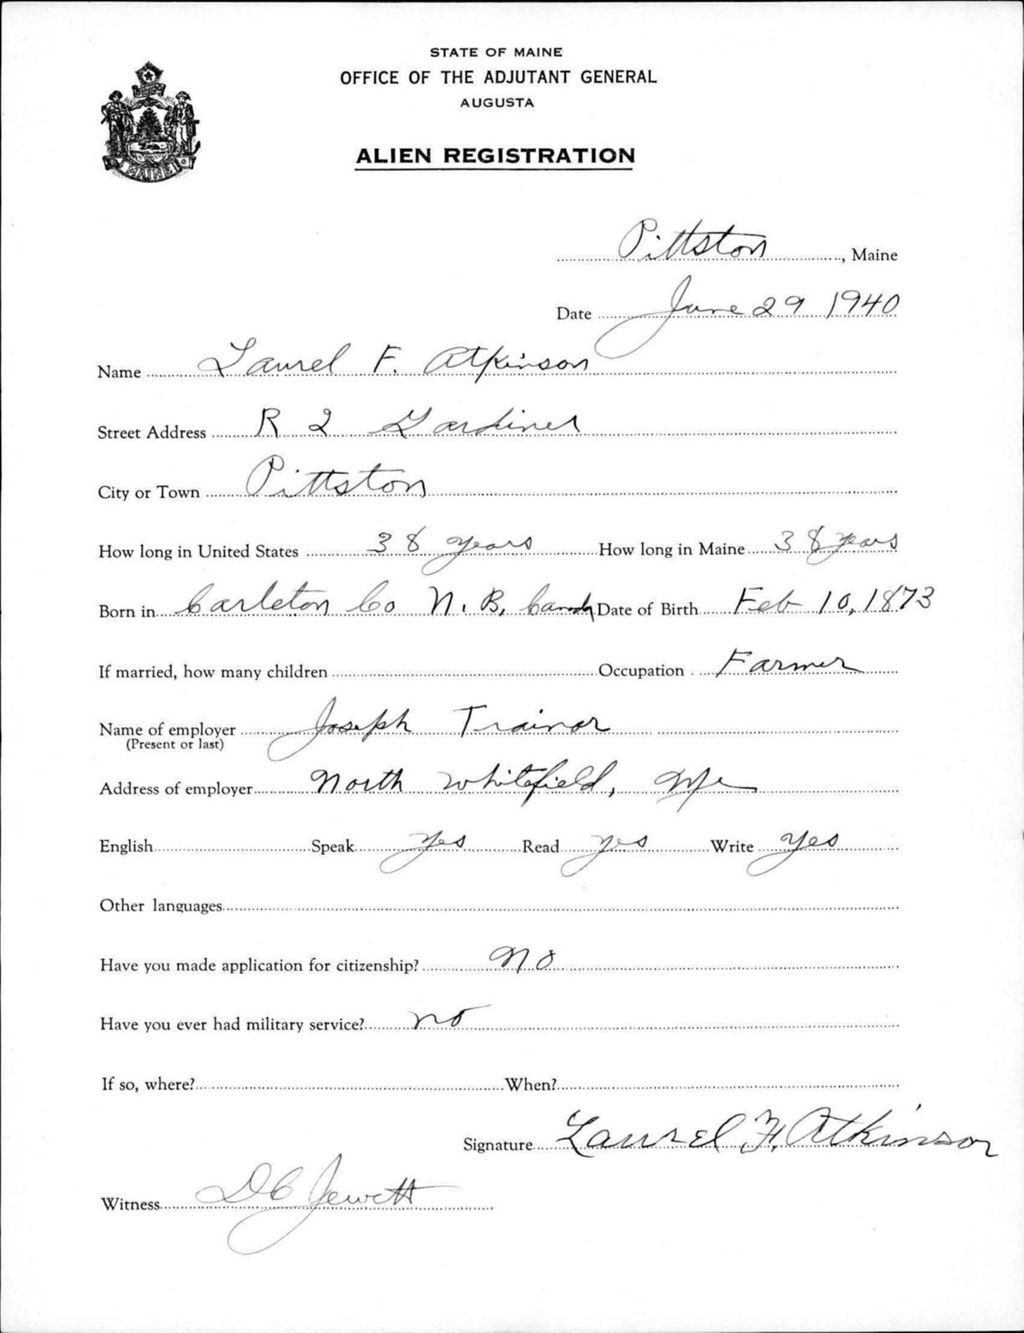 STATE OF MAINE
OFFICE OF THE ADJUTANT GENERAL
AUGUSTA
ALIEN REGISTRATION
Pittston, Maine
Date June 29 1940
Name Laurel F. Atkinson
Street Address R 2 Gardiner
City or Town Pittston
How long in United States 38 years How long in Maine 38 years
Born in Carleton Co N. B. Date of Birth Feb 10, 1873
If married, how many children Occupation Farmer
Name of employer Joseph Trainor
(Present or last)
Address of employer North Whitefield, Me
English Speak Yes Read yes Write Yes
Other languages
Have you made application for citizenship? No
Have you ever had military service? no
If so, where? When?
Signature Laurel F. Atkinson
Witness D C Jewett